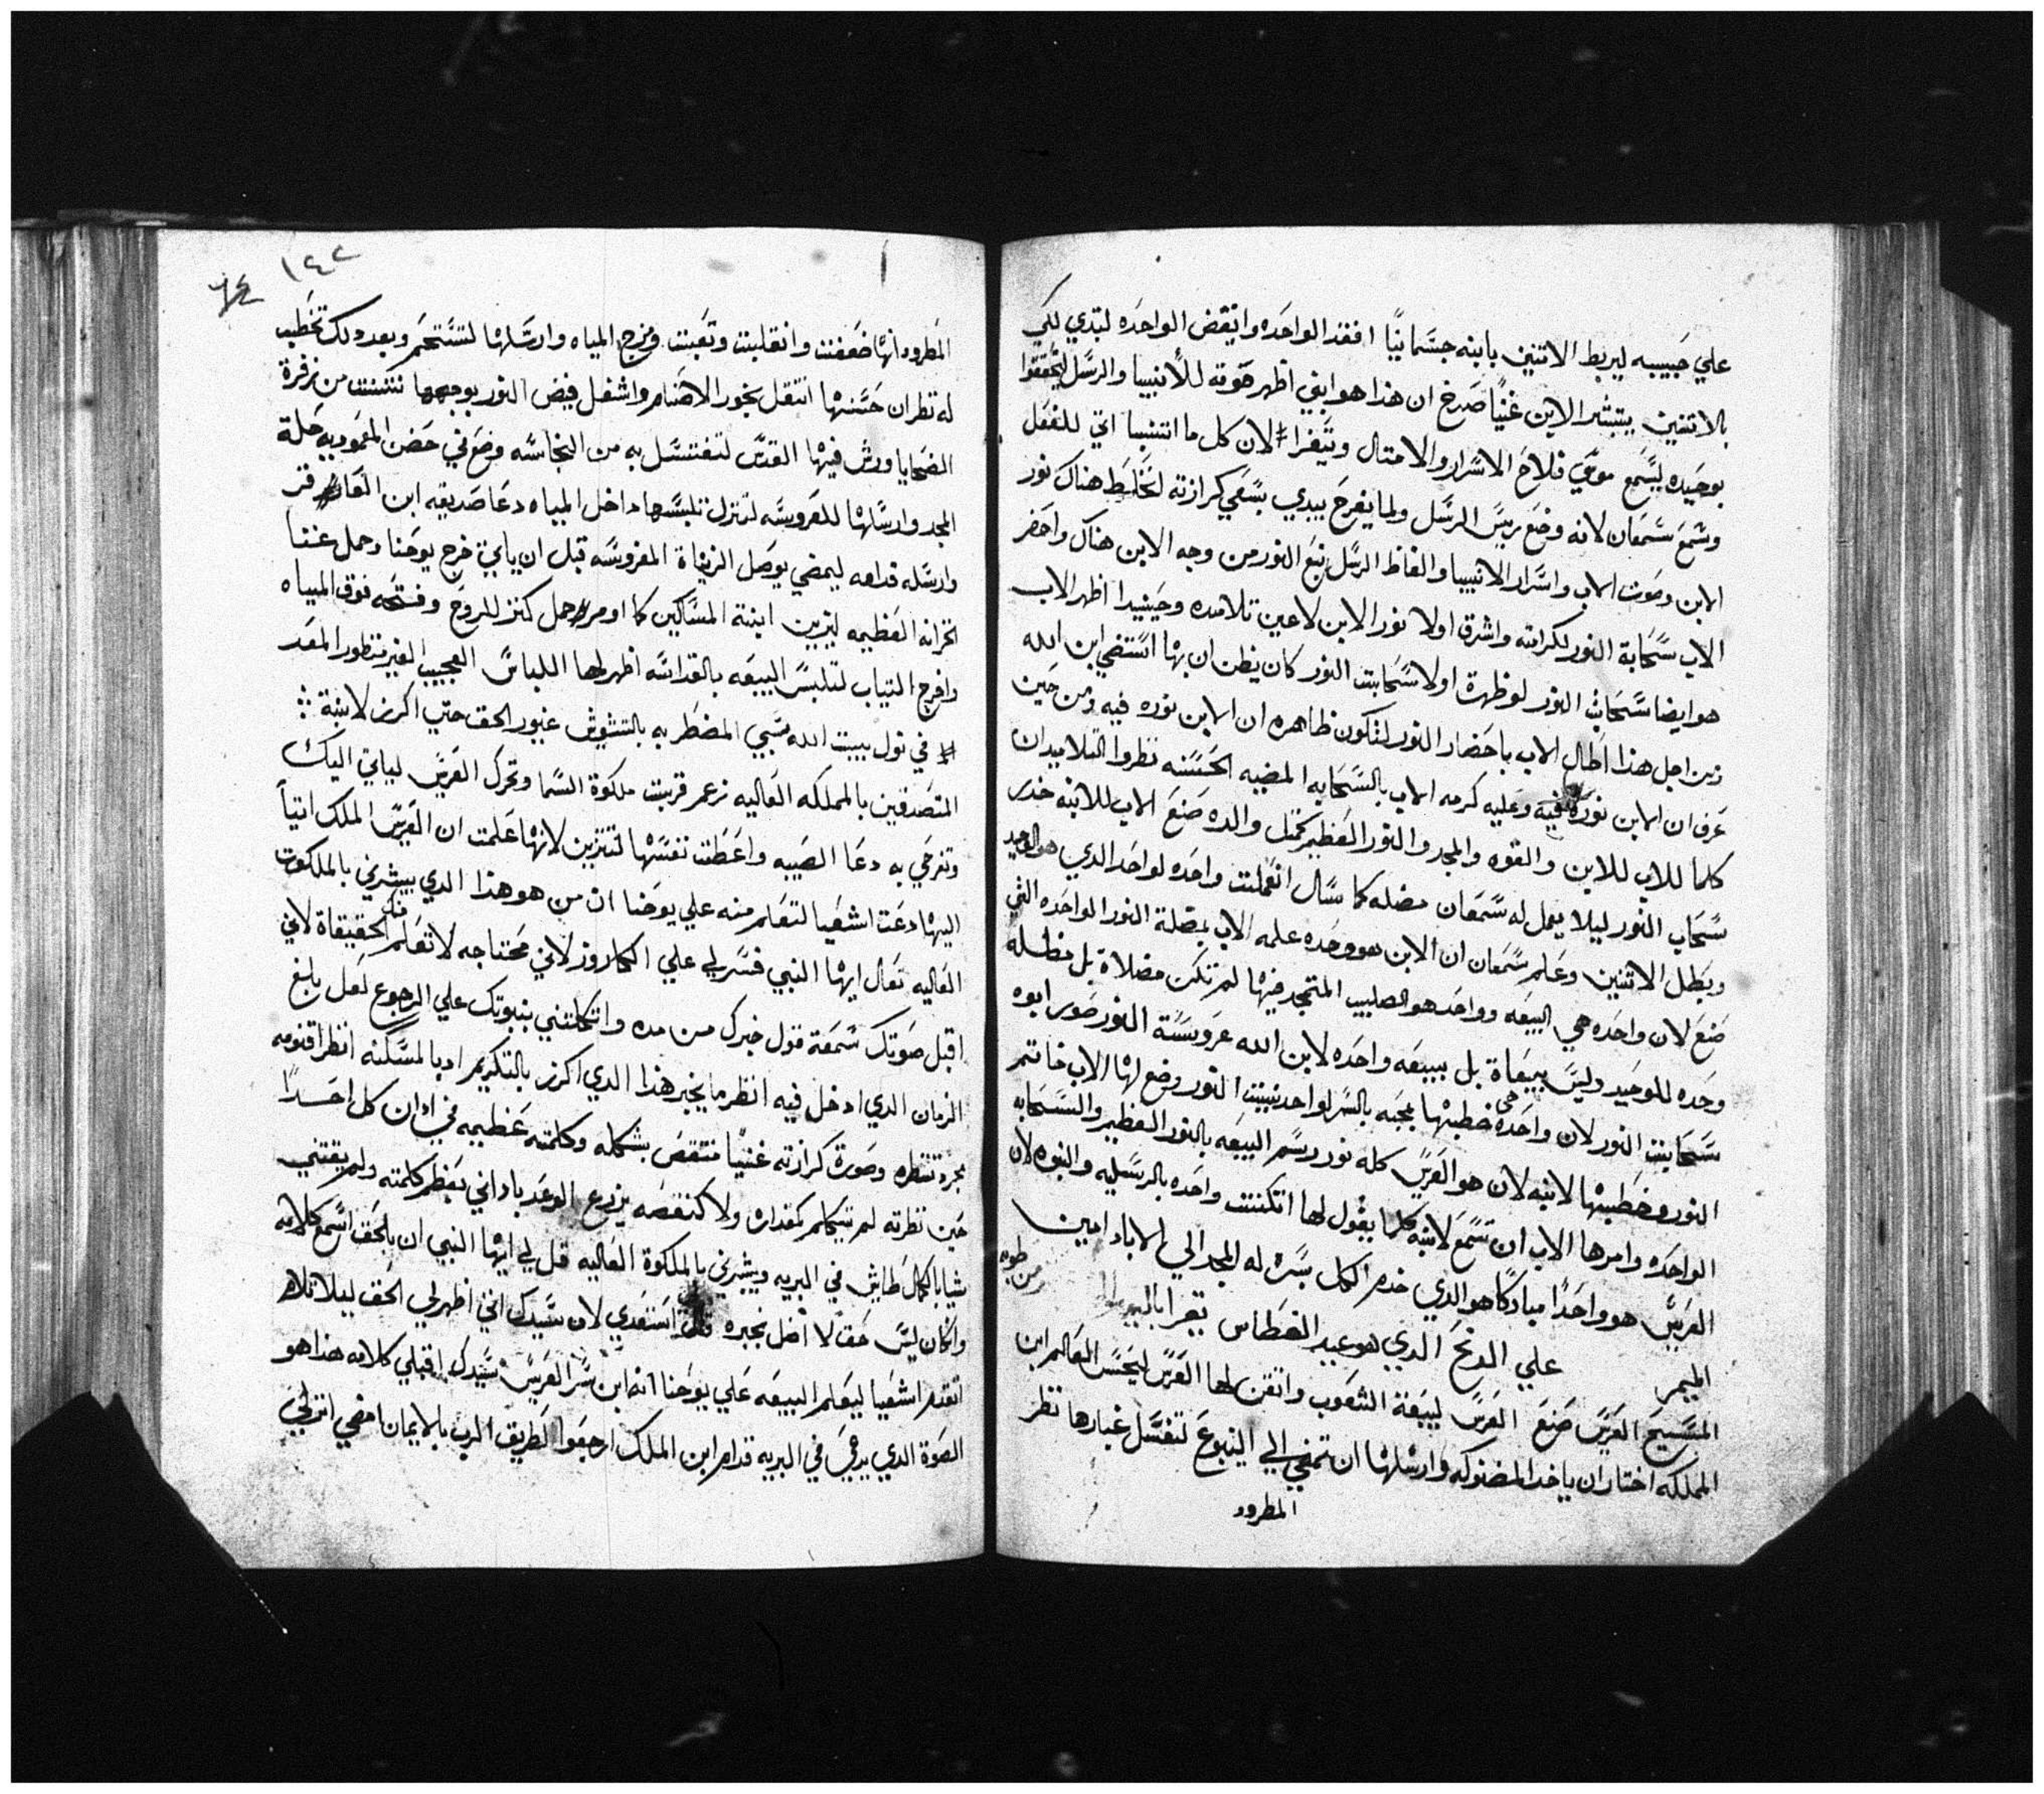 علي حَبيبه ليربط الاتنين بابنه جسَمانيًا افغد الواحَده وانقض الواحَده لبتدي لكي
بالاتنين يبتشر الابن غنيًا صَرخ ان هذا هو ابني اظهر صَوته للأنبيا والرسَل ليتحققوا
بوحَيده ليسَمع موسَي فلاحَ الاسَرار والامتال ويتَفرا لان كل ما اتنبيا اتي للفعَل
وسَمعَ سَمعَان لانه وضعَ ريسَ الرسَل ولما يفرحَ يبدي بسَعَي كرازته لتختلط هناك نور
الابن وصَوت الاب واسَرار الانبيا والفاظ الرسَل نبَع النور من وجه الابن هناك واحَضر
الاب سَحَابة النور لكرامته واشرق اولا نور الابن لاعَين تلاميده وحَينيدا اظهر الاب
هو ايضا سَحَابة النور لو ظهرة اولا سَحَابت النور كان يظن ان بها استضي ابن الله
من اجل هذا اَطال الاب باحَضار النور لتكون ظاهره ان الابن نوره فيه ومن حَين
عَرف ان الابن نوره فيه وعَليه كرمه الاب بالسَحَابه المضيه الحَسَنه نظروا التلاميد ان
كلما للاب للابن والقوه والمجد والنور العَظيم كمتل والده صَنعَ الاب للابنه خدر
سَحَاب النور ليلا يعمل له سَمعَان مضله كما سَال انعَملت واحَده لواحَد الدي هو الوحيد
وبَطل الاتنين وعَلم سَمعَان ان الابن هو وحَده علمه الاب بمضلة النور الواحَده التي
صَنعَ لان واحَده هي البيعَه وواحَد هو الصَليب المتمجد فيها لم تكن مضلاة بل مظله
وحَده للوحَيد وليسَ بيعَاة بل بيعَه واحَده لابن الله عَروسَة النور صَور ابوه
سَحَابت النور لان واحَده هي خطيبها بمحَبه بالسَر لواحَد بيت النور وضع لها الاب خاتم
النور وخطبها لابنه لان هو العَريسَ كله نور رسَم البيعَه بالنور العَظيم والسَحَابه
الواحَده وامرها الاب ان تسَمعَ لابنه كلما يقول لها اتكنت واحَده بالرسَليه والنبوه لان
العَريسَ هو واحَدًا مباركا هو الدي خدم الكل بسَره له المجد الي الاباد امين
الميمر علي الدنحَ الدي هو عيد الغطاس يقرا
المسَيحَ العَريسَ صَنعَ العَرسَ لبيعَة الشعَوب واتقن لها العَرسَ ليحَسَ العَالم ابن
المملكه اختار ان ياخد المضنوكه وارسَلها ان تمضي الي الينبوعَ لتغسَل غبارها نظر
المطرود
١٤٢
المَطرود انها ضعَفت وانقلبت وتعَبت ومزج المياه وارسَلها لتستحَم وبعَد دلك تخطب
له نظر ان حَسَنها انتقل بخور الاصَنام واشغل فيض النور بوجهها نتنت من زفرة
الضحَايا ورش فيها القدسَ لتغتسَل به من النجاسَه وضعَ في حَضن المعَموديه حَلة
المجد وارسَلها للعَروسَه لتنزل تلبسَها داخل المياه دعَا صَديقه ابن العَاقر
وارسَله قدامه ليمضي يوصَل الزيفاة المفروسَه قبل ان ياتي خرج يوحَنا وحَمل غنا
الخزانه العَظيمه ليزين ابنة المسَاكين كما اومر حمل كنز الروحَ وفتحَه فوق المياه
وافرج التياب لتلبسَ البيعَه بالقداسَه اظهر لها اللباسَ العَجيب الغير منظور المعَد
في نول بيت الله سَبي المضطربه بالتشويش عَبور الحَق حتي اكرز لابنة
المتصَدقين بالمملكه العَاليه زعم قربت ملكوة السَما وتحَرك العَريسَ لياتي اليك
وتفرحَي به دعَا الصَبيه واعَطت نفسَها لتتزين لانها عَلمت ان العَريسَ الملك اتياً
اليها دعَت اشعَيا لتعَلم منه علي يوحَنا ان من هو هذا الدي يبشرني بالملكوت
العَاليه تعَال ايها النبي فسَر لي علي الكاروز لاني محَتاجه لاتعَلم منك الحَقيقاة لاني
اقبل صَوتك سَمعَة قول خبرك من مده واتكلتني بنبوتك علي الرجوع لعَل بلغ
الزمان الدي ادخل فيه انظر ما يخبر هذا الدي اكرز بالتكريم ادبالمسَكنه انظر اقنومه
مجرد تنظره وصَورة كرازته غنيًا منتقصَ بشكله وكلمته عَظيمه في ادان كل احَدًا
حَين نظرته لم يتكلم بمقداره ولا كنقصَه يزرع الوعَد باداني يعَظم كلمته ولم يقتني
شيا بالكمال طايش في البريه ويبشرني بالملكوة العَاليه قل لي ايها النبي ان بالحَق اسَمع كلامه
وانكان ليسَ حَق لا اقبل بخبره استعَدي لان سَيدك اتي اظهر لي الحَق ليلا تلام
اتقدم اشعَيا ليعَلم البيعَه عَلي يوحَنا انه ابن سَر العَريسَ سَيدك اقبلي كلامه هذا هو
الصَوة الدي يدعَي في البريه قدام ابن الملك ارجعَوا لَطريق الرب بالايمان امضي انزلي